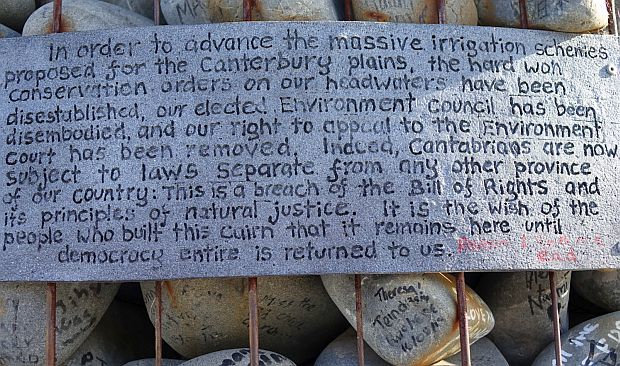 In order to advance the massive irrigation schemes
proposed for the Canterbury plains, the hard won
conservation orders on our headwaters have been
disestablished, our elected Environment council has been
disembodied, and our right to appeal to the Environment
Court has been removed. Indeed, Cantabrians are now
subject to laws separate from any other province
of our country: This is a breach of the Bill of Rights and
its principles of natural justice. It is the wish of the
people who built this Cairn that it remains here until
democracy entire is returned to us.
Theresa